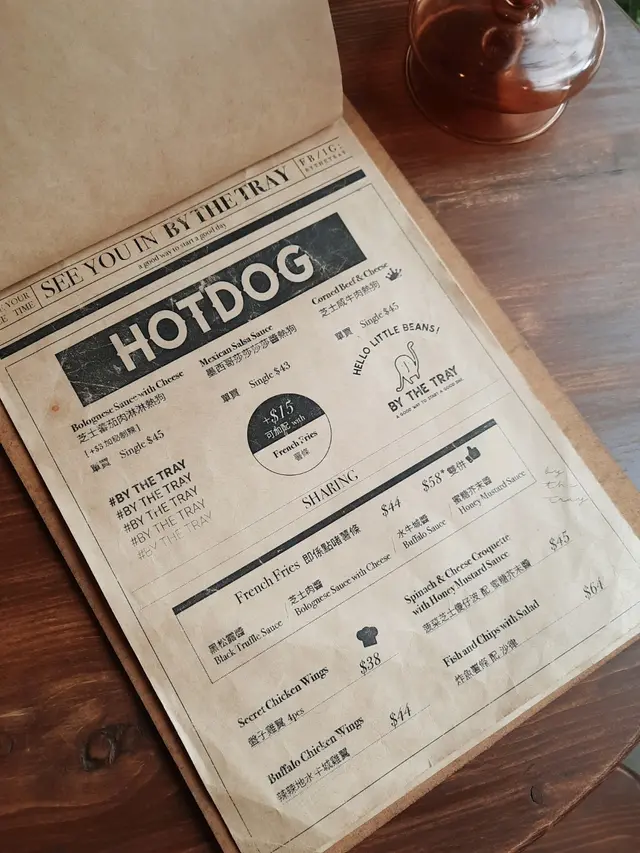 YOUR
TIME
SEE YOU IN BY THE TRAY
a good way to start a good day
FB/IG:
BYTHETRAY
HOTDOG
Bolognese Sauce with Cheese
芝士蕃茄肉淋淋熱狗
單買 Single $45
Mexican Salsa Sauce
墨西哥莎莎莎莎醬熱狗
單買 Single $43
Corned Beef & Cheese
芝士咸牛肉熱狗
單買 Single $45
+$15
可加配 with
French Fries
薯條
HELLO LITTLE BEANS!
BY THE TRAY
A GOOD WAY TO START A GOOD DAY.
#BY THE TRAY
#BY THE TRAY
#BY THE TRAY
#BY THE TRAY
#BY THE TRAY
SHARING
French Fries 即係點啫薯條 $44 $58* 雙併
黑松露醬
Black Truffle Sauce
芝士肉醬
Bolognese Sauce with Cheese
水牛城醬
Buffalo Sauce
蜜糖芥末醬
Honey Mustard Sauce
by
the
tray
Secret Chicken Wings
雞翼 4pcs $38
Buffalo Chicken Wings $44
辣辣地水牛城雞翼
Spinach & Cheese Croquette
with Honey Mustard Sauce $45
菠菜芝士薯仔波 配 蜜糖芥末醬
Fish and Chips with Salad $64
炸魚薯條 配 沙律